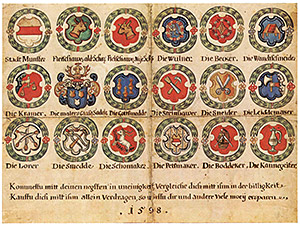 Statt Munster Fleishauwe altSchar Fleishauwe NijSchar Die Wulner. Die Becker. Die Wandtschneider
Die Kramer. Die maler Glaser Sadeler Die Goltsmede Die Peltser Die Sneider Die Leiddemaker
Die Loher Die Smedde Die Schomaker Die Steinmawer Die Boddeker Die Kannegeiter
Kommestu mitt deinen negsten in uneinigkeit Vergleiche dich mitt ihm in der billigkeit
Kanstu dich mitt ihm allein Verdragen, so dir und andere Viele moey ersparen
1598